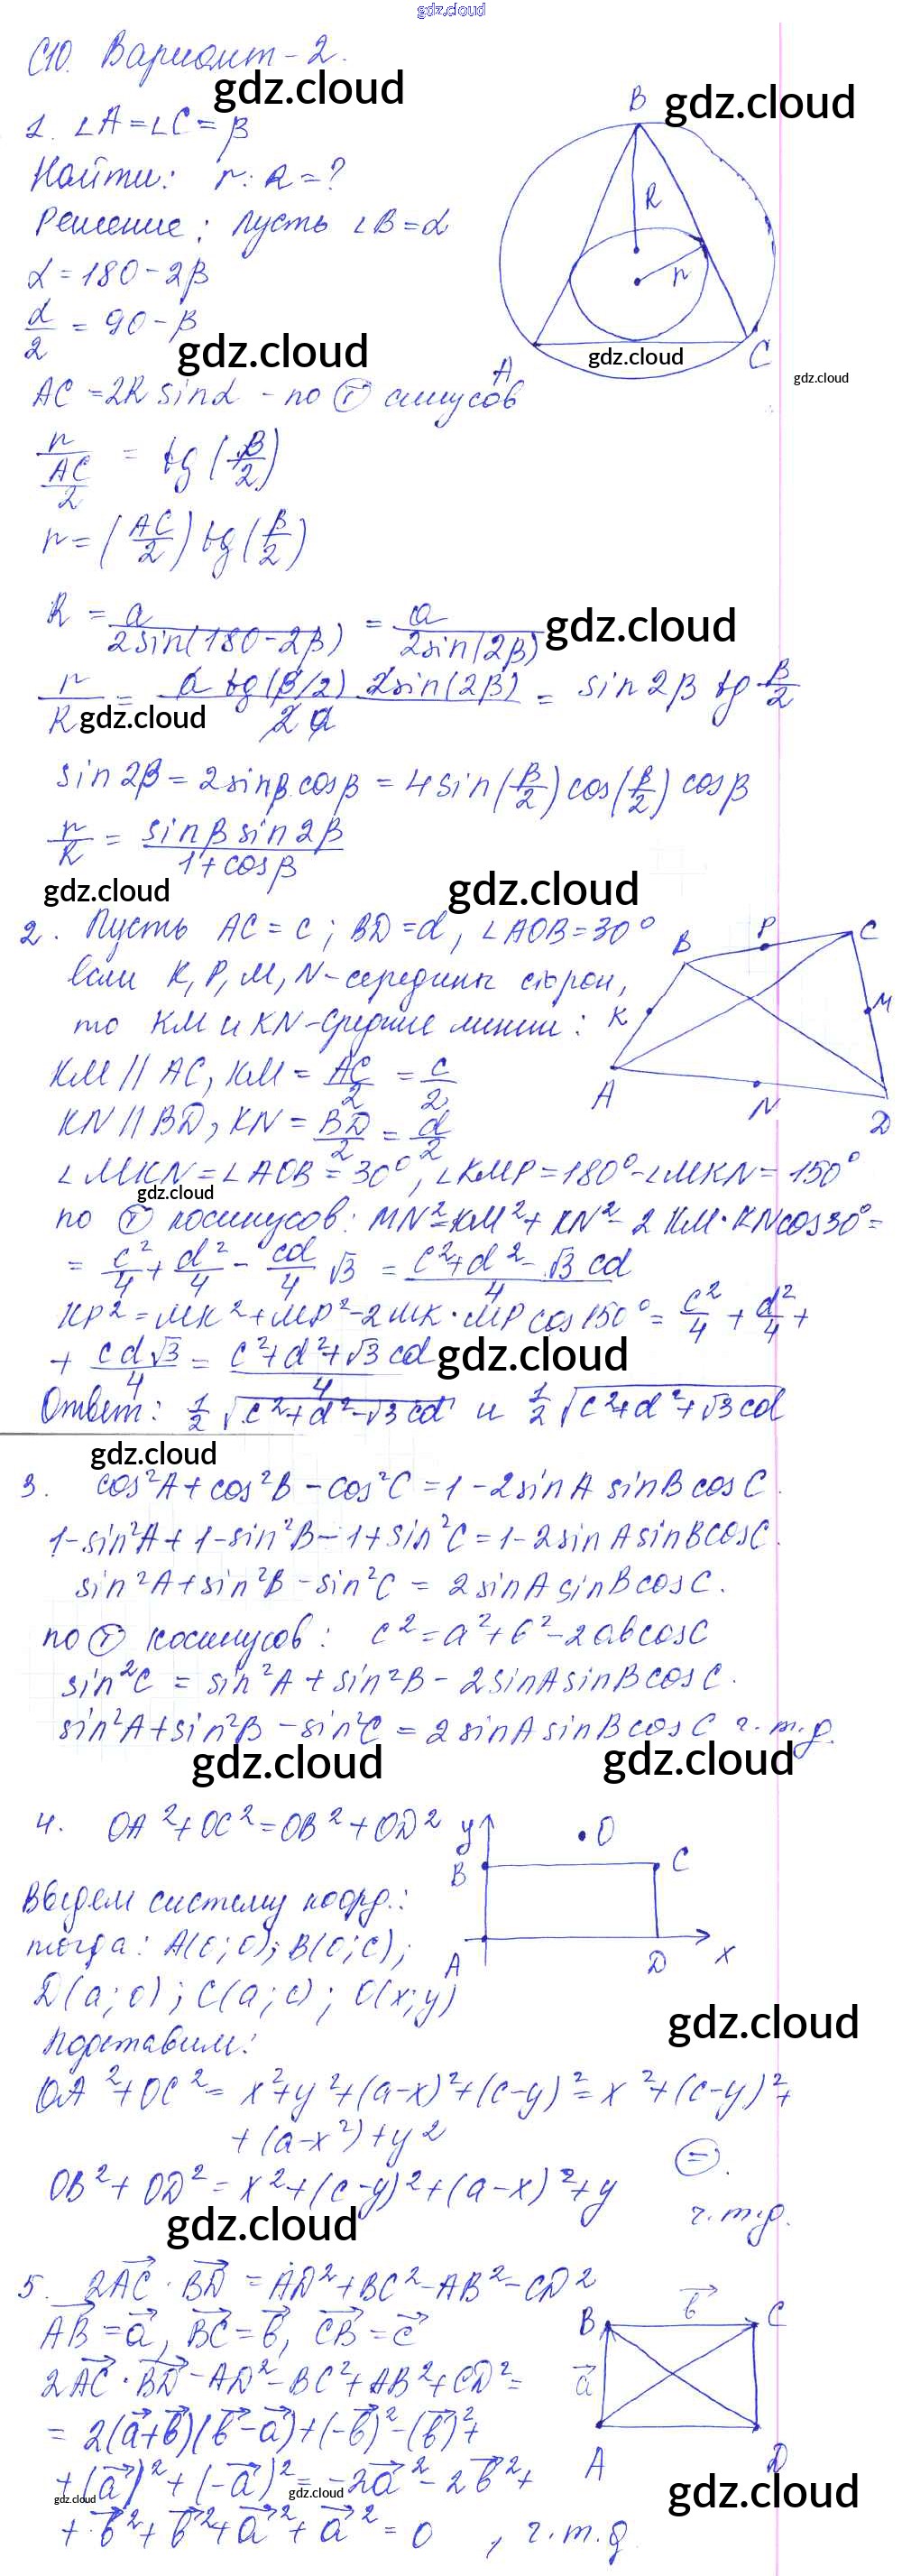 gdz.cloud
С10. Вариант-2.
gdz.cloud
gdz.cloud
1. ∠A=∠C=β
Найти: r:R=?
Решение: пусть ∠B=α
α=180-2β
α/2 = 90-β
gdz.cloud
AC=2R sinα - по Ⓣ синусов
r/(AC/2) = tg(β/2)
r=(AC/2) tg(β/2)
B
R
r
A
C
gdz.cloud
gdz.cloud
R = a/(2sin(180-2β)) = a/(2sin(2β))
gdz.cloud
r/R = (a tg(β/2) 2sin(2β))/(2a) = sin2β tg β/2
gdz.cloud
sin2β=2sinβcosβ=4sin(β/2)cos(β/2)cosβ
r/R = (sinβ sin2β)/(1+cosβ)
gdz.cloud
gdz.cloud
2. Пусть AC=c; BD=d, ∠AOB=30°
если K, P, M, N-середины сторон,
то KM и KN-средние линии:
KM//AC, KM=AC/2=c/2
KN//BD, KN=BD/2=d/2
B
P
C
K
M
A
N
D
∠MKN=∠AOB=30°, ∠KMP=180°-∠MKN=150°
gdz.cloud
по Ⓣ косинусов: MN²=KM²+KN²-2KM·KNcos30°=
= c²/4+d²/4-cd/4 √3 = (c²+d²-√3cd)/4
KP²=MK²+MP²-2MK·MPcos150°=c²/4+d²/4+
+ cd√3/4 = (c²+d²+√3cd)/4
gdz.cloud
Ответ: 1/2√(c²+d²-√3cd) и 1/2√(c²+d²+√3cd)
gdz.cloud
3. cos²A+cos²B-cos²C=1-2sinA sinBcosC.
1-sin²A+1-sin²B-1+sin²C=1-2sinAsinBcosC.
sin²A+sin²B-sin²C=2sinAsinBcosC.
по Ⓣ косинусов: c²=a²+b²-2abcosC
sin²C=sin²A+sin²B-2sinAsinBcosC.
sin²A+sin²B-sin²C=2sinAsinBcosC ч.т.д.
gdz.cloud
gdz.cloud
4. OA²+OC²=OB²+OD²
Введем систему коорд.:
тогда: A(0;0); B(0;c);
D(a;0); C(a;c); O(x;y)
y
O
B
C
A
D
x
gdz.cloud
Подставим:
OA²+OC²=x²+y²+(a-x)²+(c-y)²=x²+(c-y)²+
+(a-x²)+y2
OB²+OD²=x²+(c-y)²+(a-x)²+y
(=).
ч.т.д.
gdz.cloud
5. 2AC·BD=AD²+BC²-AB²-CD²
AB=a, BC=b, CB=c
2AC·BD-AD²-BC²+AB²+CD²=
=2(a+b)(b-a)+(-b)²-(b)²+
+(a)²+(-a)²=-2a²-2b²+
+b²+b²+a²+a²=0, ч.т.д
B
b
C
a
A
D
gdz.cloud
gdz.cloud
gdz.cloud